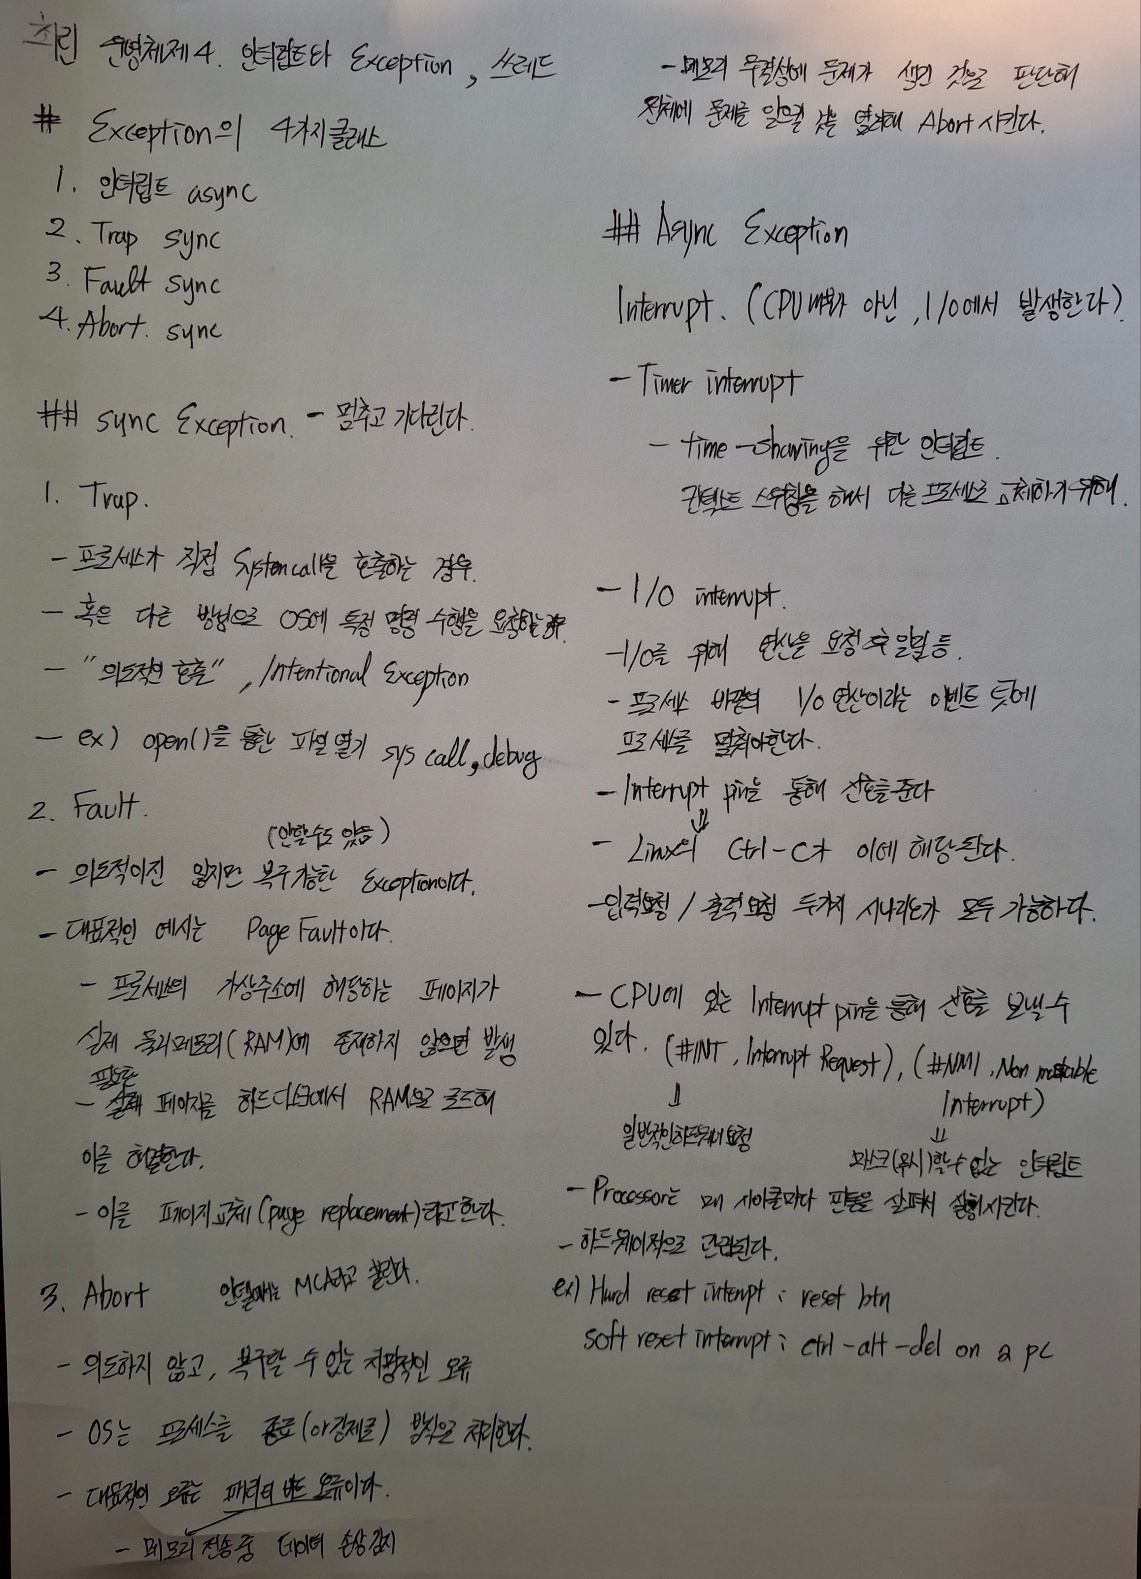 최린 운영체제 4. 인터럽트와 Exception, 쓰레드
# Exception의 4가지 클래스
1. 인터럽트 async
2. Trap sync
3. Fault sync
4. Abort. sync
## sync Exception. - 멈추고 기다린다.
1. Trap.
- 프로세스가 직접 System call을 호출하는 경우.
- 혹은 다른 방법으로 OS에 특정 명령 수행을 요청하는 경우.
- "의도적인 호출", Intentional Exception
- ex) open()을 통한 파일 열기 sys call, debug
2. Fault.
(안할 수도 있음)
- 의도적이진 않지만 복구 가능한 Exception이다.
- 대표적인 예시는 Page Fault이다.
- 프로세스의 가상주소에 해당하는 페이지가
실제 물리메모리(RAM)에 존재하지 않으면 발생
필요한
- 실제 페이지를 하드디스크에서 RAM으로 로드해
이를 해결한다.
- 이를 페이지 교체(page replacement)라고 한다.
3. Abort 인텔에서는 MCA라고 불린다.
- 의도하지 않고, 복구할 수 없는 치명적인 오류
- OS는 프로세스를 종료(or 강제로) 방식으로 처리한다.
- 대표적인 오류는 패리티 비트 오류이다.
- 메모리 전송 중 데이터 손상 감지
- 메모리 무결성에 문제가 생긴 것으로 판단해
전체에 문제를 일으킬 것을 염려해 Abort 시킨다.
## Async Exception
Interrupt. (CPU 내부가 아닌, I/O에서 발생한다).
- Timer interrupt
- time-sharing을 위한 인터럽트.
컨텍스트 스위칭을 해서 다른 프로세스로 교체하기 위해.
- I/O interrupt.
- I/O를 위해 연산을 요청 후 일밀 등.
- 프로세스 바깥의 I/O 연산이라는 이벤트 탓에
프로세스를 멈춰야한다.
- Interrupt pin을 통해 신호를 준다
⇓
- Linux의 Ctrl-C가 이에 해당된다.
- 입력요청 / 출력요청 두가지 시나리오가 모두 가능하다.
- CPU에 있는 Interrupt pin을 통해 신호를 보낼 수
있다. (#INT, Interrupt Request), (#NMI, Non maskable
Interrupt)
⇓
일반적인 하드웨어 요청
⇓
마스크(무시)할 수 없는 인터럽트
- Processor는 매 사이클마다 핀들을 살펴서 실행시킨다.
- 하드웨어적으로 관리된다.
ex) Hard reset interupt : reset btn
soft reset interrupt : ctrl-alt-del on a pc